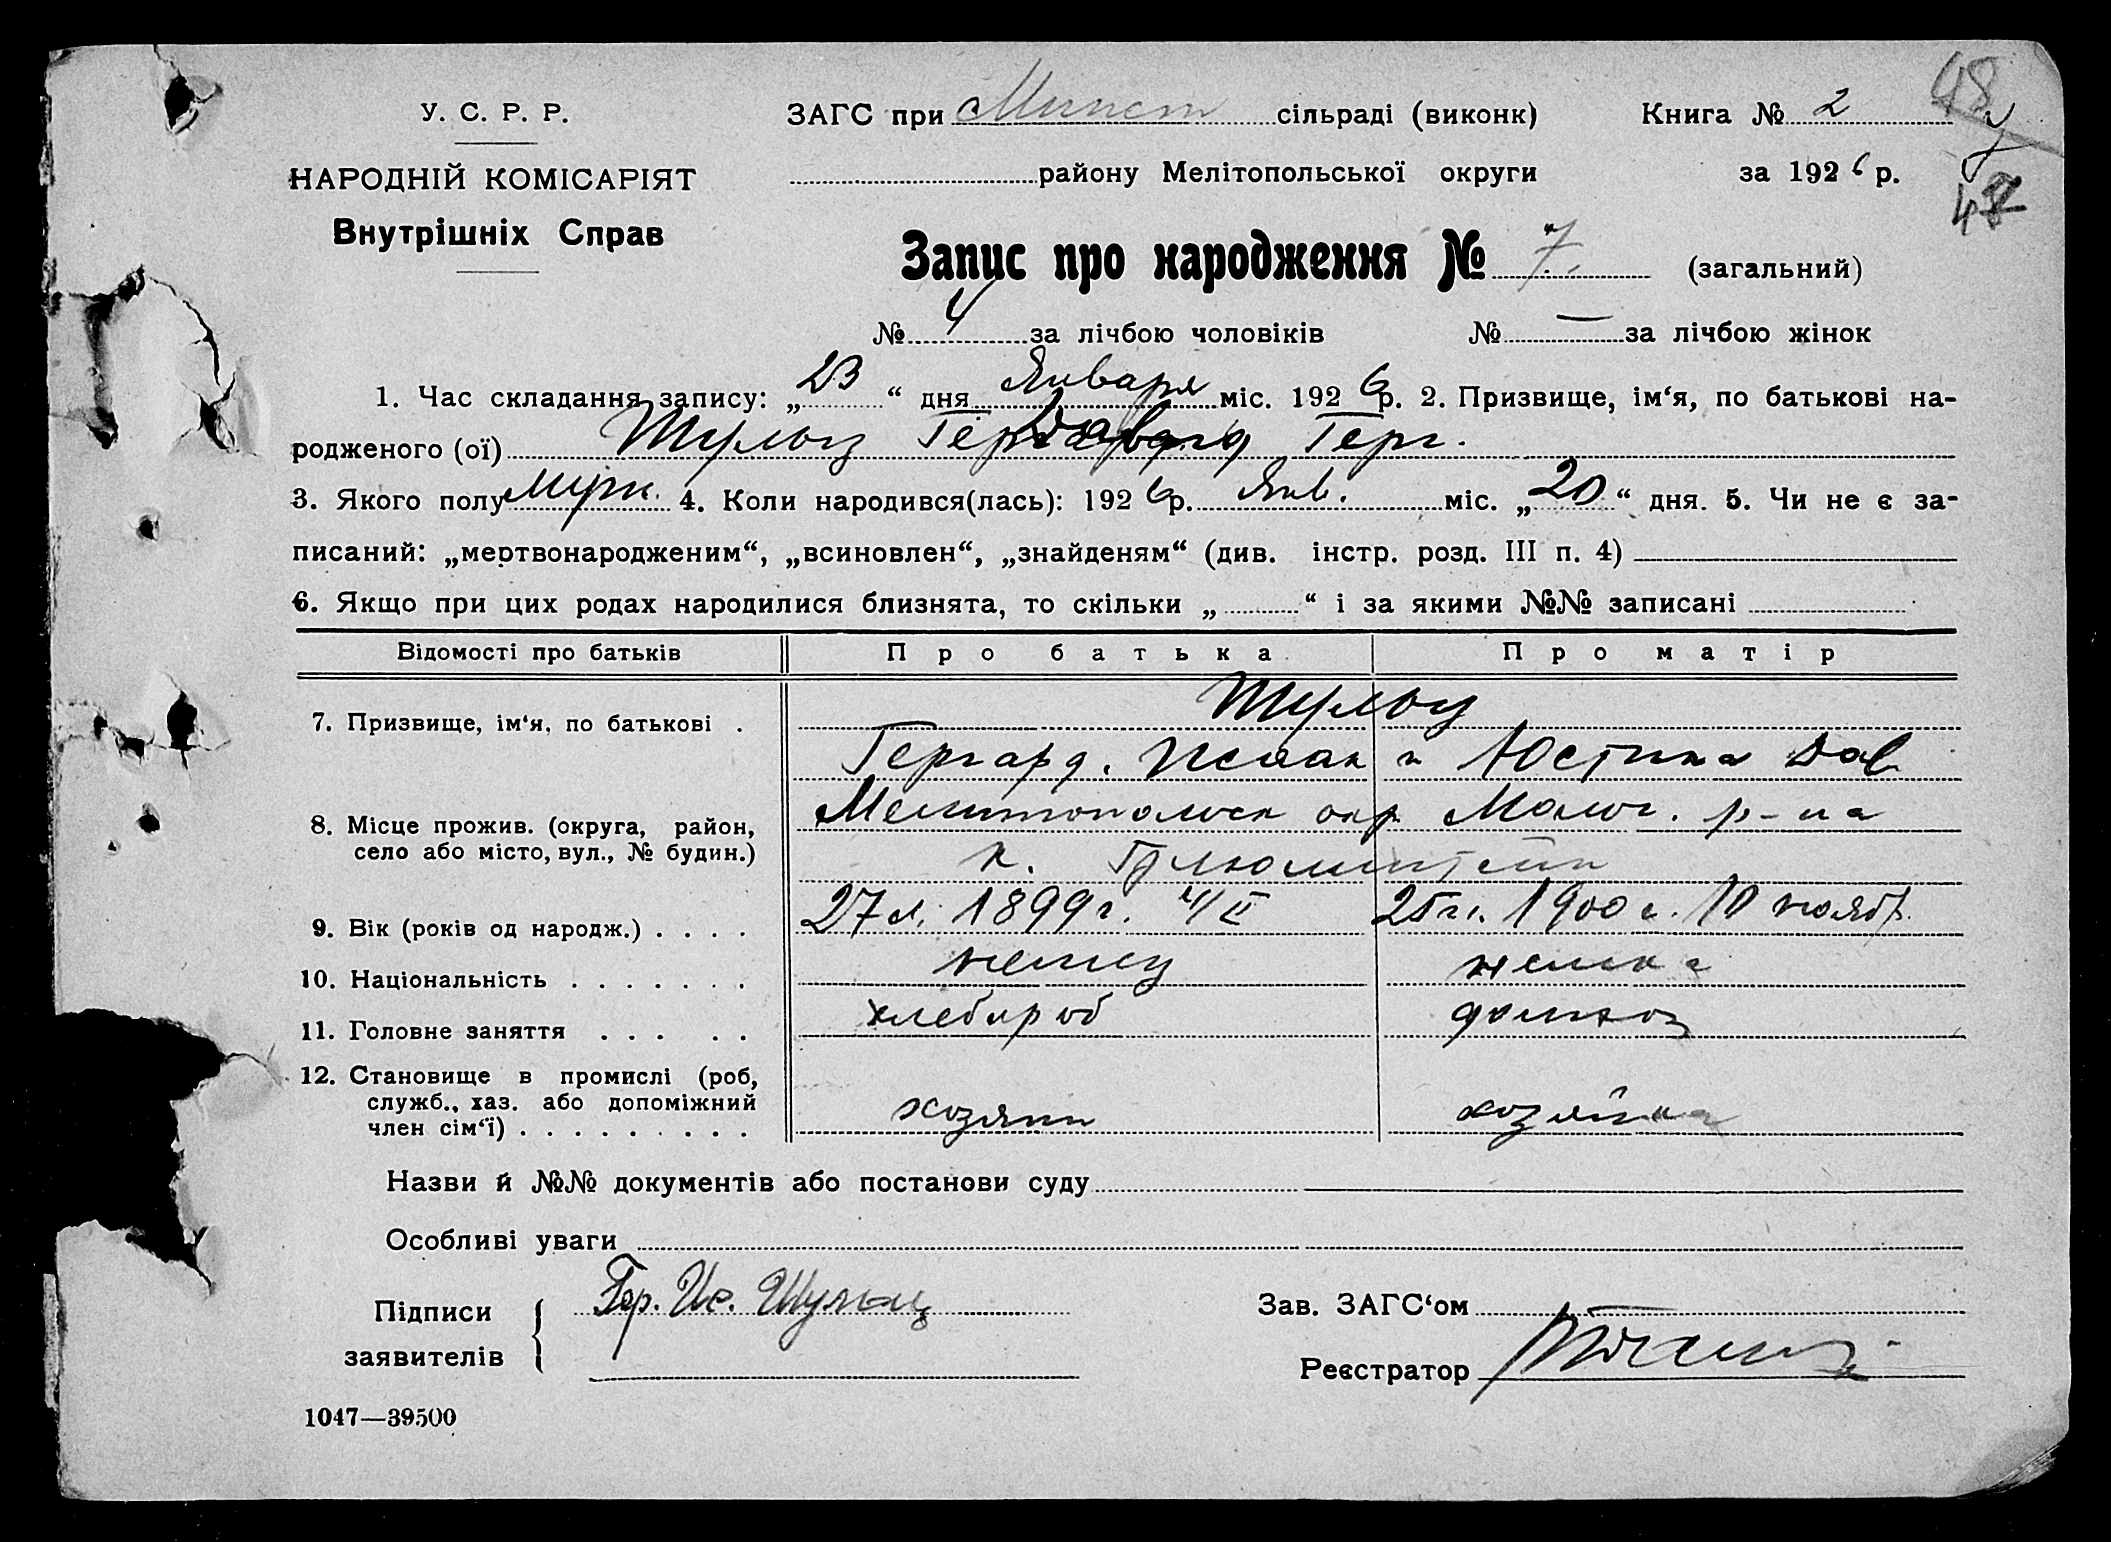 У. С. Р. Р.
НАРОДНІЙ КОМІСАРІЯТ
Внутрішніх Справ
ЗАГС при Минст сільраді (виконк)
району Мелітопольської округи
Книга № 2
за 1926 р.
48
47
Запис про народження № 7. (загальний)
№ 4 за лічбою чоловіків № — за лічбою жінок
1. Час складання запису: „23“ дня Января міс. 1926 р. 2. Призвище, ім‘я, по батькові на-
родженого (ої) Шульц Герг.
3. Якого полу муж. 4. Коли народився(лась): 1926 р. Янв. міс. „20“ дня. 5. Чи не є за-
писаний: „мертвонародженим“, „всиновлен“, „знайденям“ (див. інстр. розд. III п. 4)
6. Якщо при цих родах народилися близнята, то скільки „ “ і за якими №№ записані
Відомості про батьків Про батька Про матір
7. Призвище, ім‘я, по батькові . Шульц
Гергард. Исаак и Юстина Дав
8. Місце прожив. (округа, район, село або місто, вул., № будин.) Мелитопольск окр. Молоч. р-на
к. Блюмштейн
9. Вік (років од народж.) . . . . 27 л. 1899 г. 4/II 25 г. 1900 г. 10 ноябр.
10. Національність . . . . . . . немец немка
11. Головне заняття . . . . . хлебороб домхоз
12. Становище в промислі (роб, служб., хаз. або допоміжний член сім‘ї) . . . . . . . . . хозяин хозяйка
Назви й №№ документів або постанови суду
Особливі уваги
Підписи заявителів Гер. Ис. Шульц
Зав. ЗАГС‘ом
Реєстратор
1047—39500